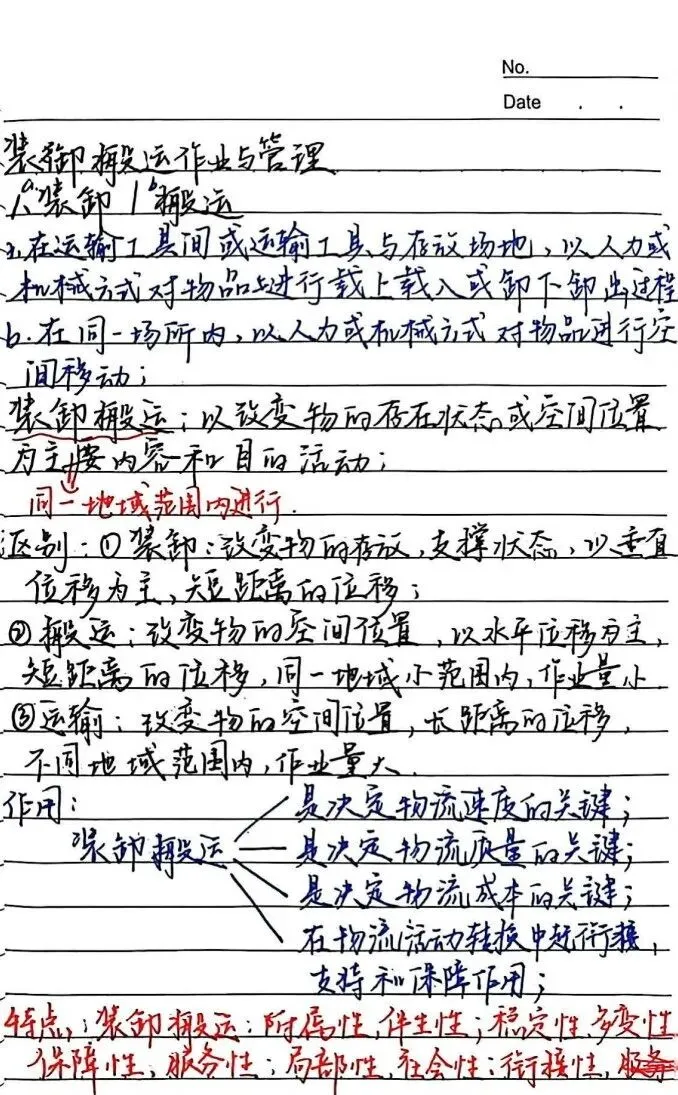 No.
Date . .
装卸搬运作业与管理
1、a装卸 1b搬运
a.在运输工具间或运输工具与存放场地,以人力或
机械方式对物品上进行载上载入或卸下卸出过程
b.在同一场所内,以人力或机械方式对物品进行空
间移动;
装卸搬运:以改变物的存在状态或空间位置
为主要内容和目的活动;
同一地域范围内进行.
区别:①装卸:改变物的存放,支撑状态,以垂直
位移为主、短距离的位移;
②搬运:改变物的空间位置,以水平位移为主,
短距离的位移,同一地域小范围内,作业量小
③运输:改变物的空间位置,长距离的位移,
不同地域范围内,作业量大.
作用:
装卸搬运
是决定物流速度的关键;
是决定物流质量的关键;
是决定物流成本的关键;
在物流活动转换中起衔接,
支持和保障作用;
特点:装卸搬运:附属性,伴生性;稳定性,多变性
保障性,服务性;局部性,社会性;衔接性,